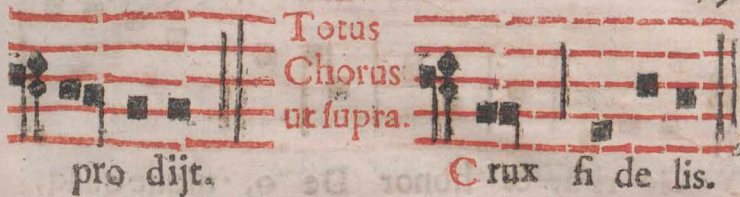 Totus
Chorus
ut ſupra.
pro dijt.
Crux fi de lis.